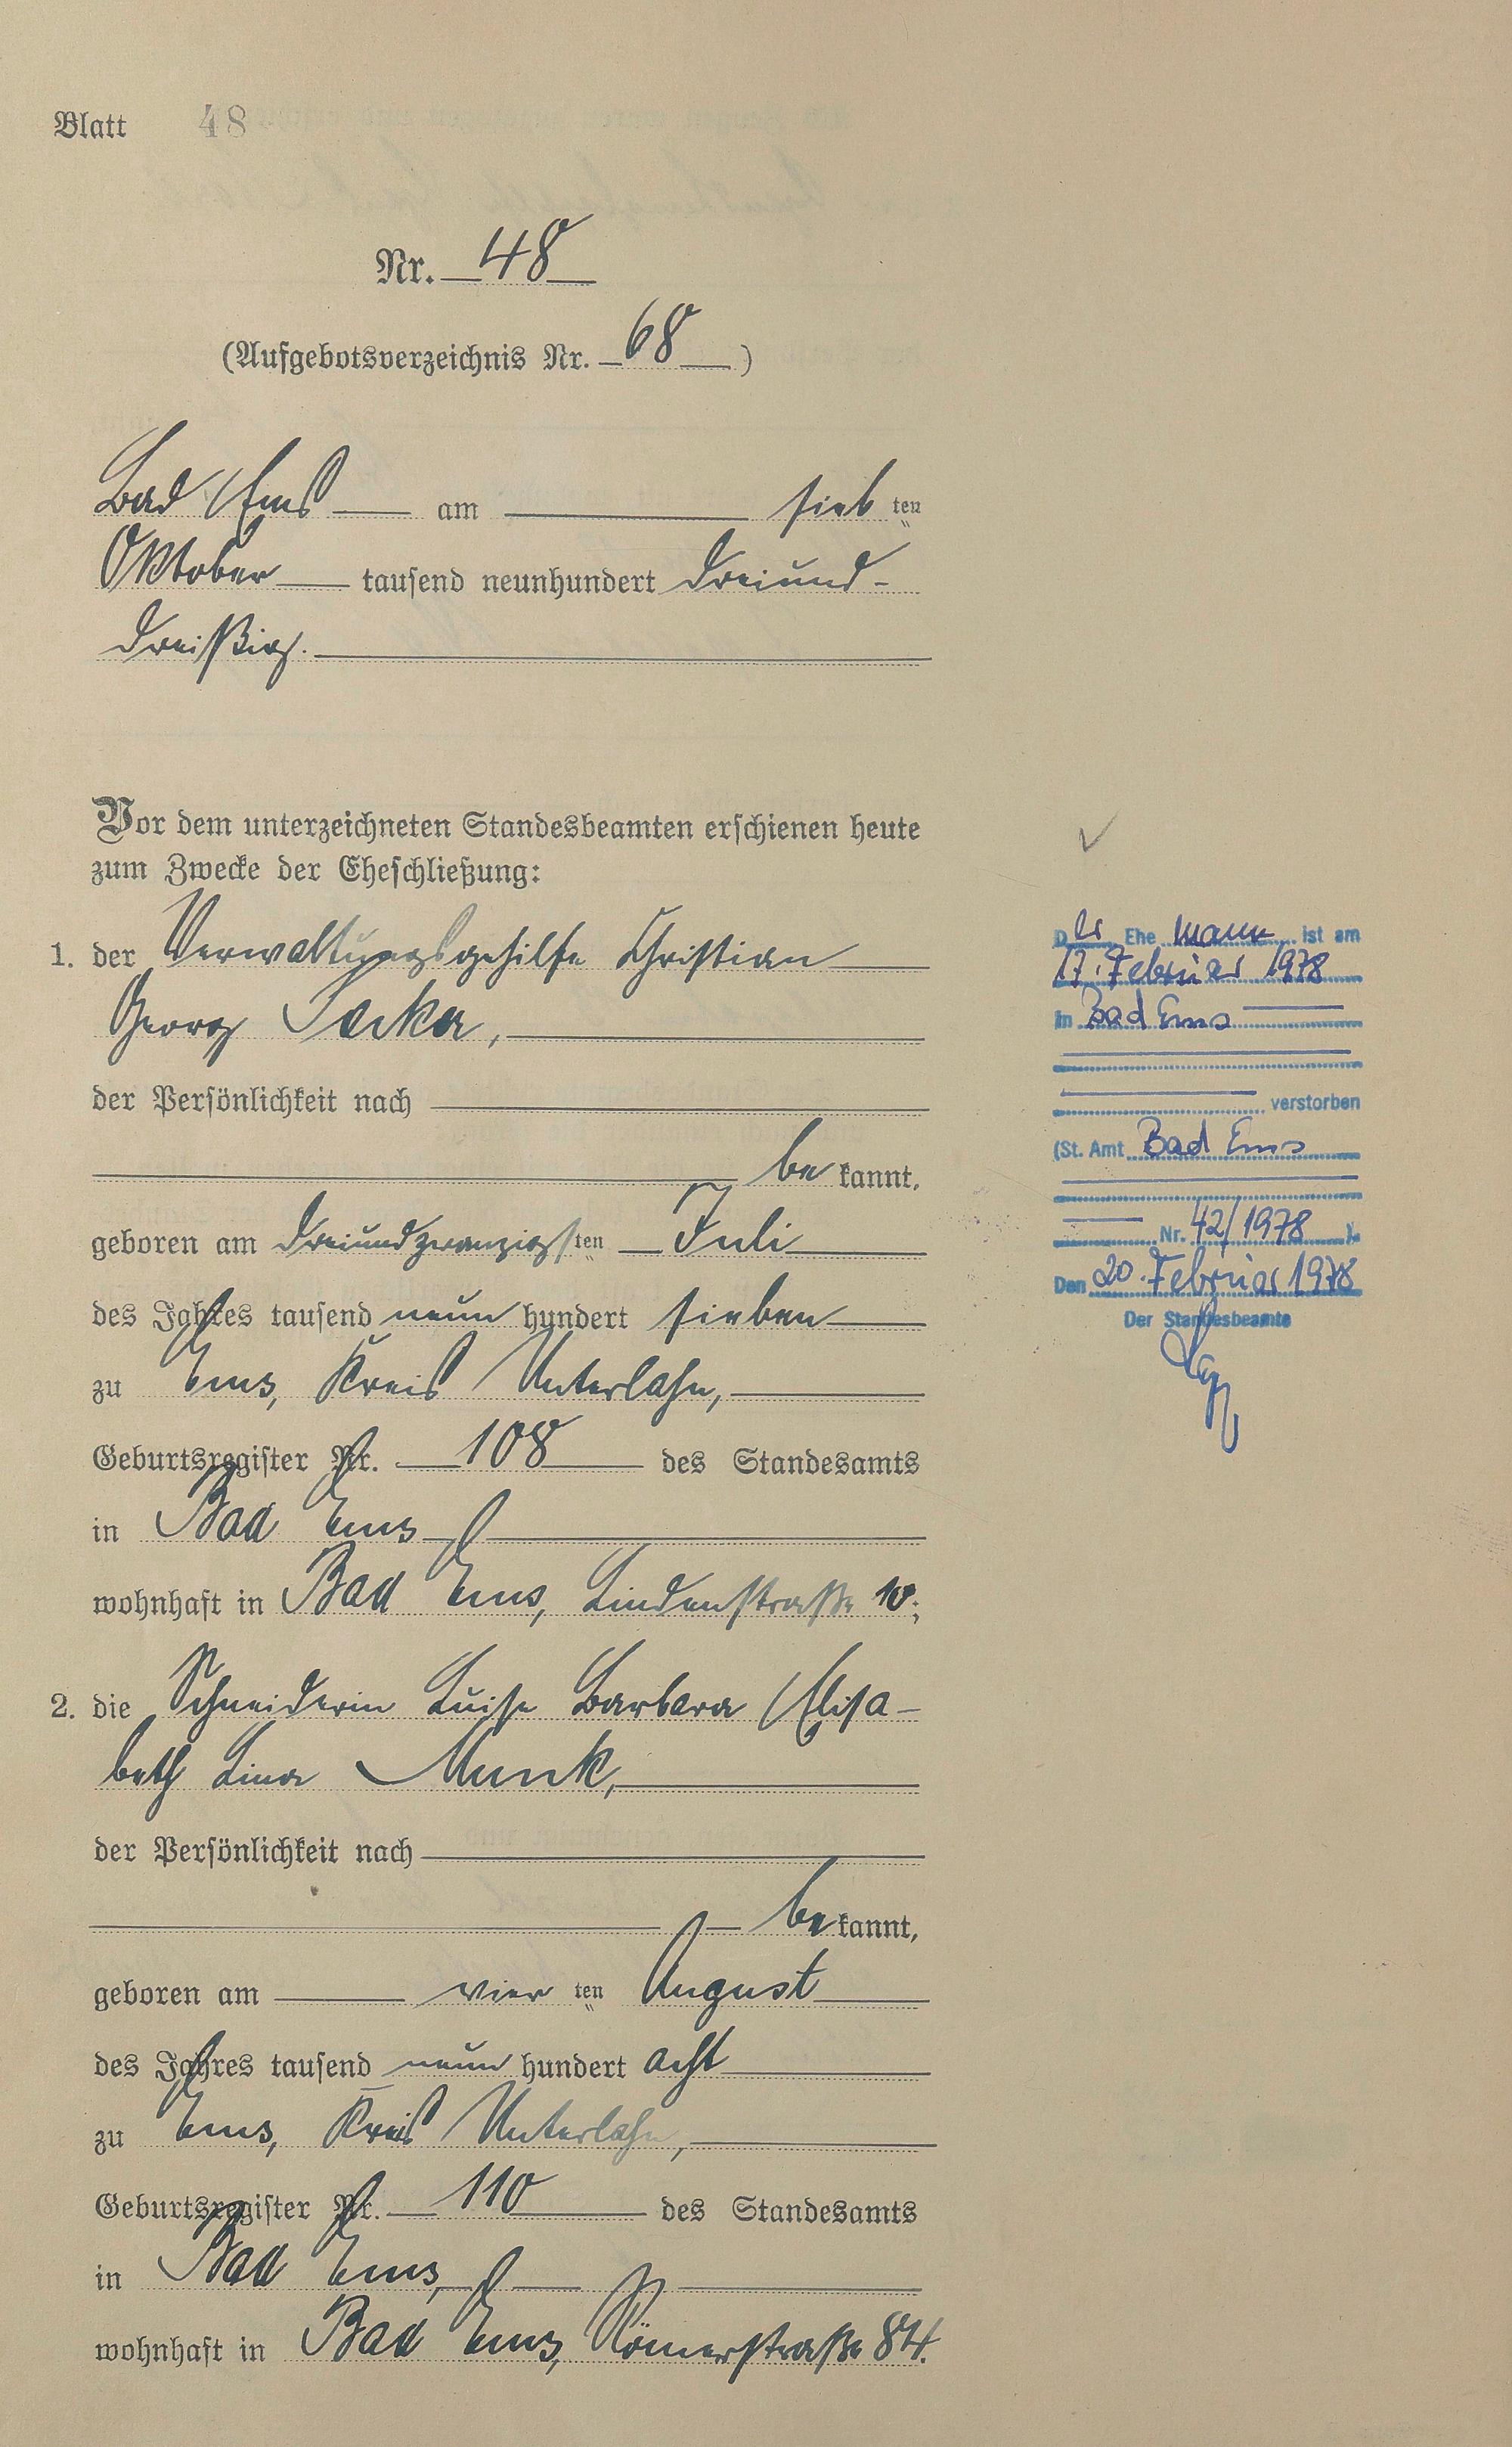 Blatt 48
Nr. 48
(Aufgebotsverzeichnis Nr. 68)
Bad Ems am sieb ten
Oktober tausend neunhundert dreiund-
dreißig.
Vor dem unterzeichneten Standesbeamten erschienen heute
zum Zwecke der Eheschließung:
1. der Verwaltungsgehilfe Christian
Georg
der Persönlichkeit nach
be kannt,
geboren am dreiundzwanzigsten Juli
des Jahres tausend neun hundert sieben
zu Ems, Kreis Unterlahn,
Geburtsregister Nr. 108 des Standesamts
in Bad Ems
wohnhaft in Bad Ems, Lindenstraße 10;
2. die Schneiderin Luise Barbara Elisa-
beth Lina Munk,
der Persönlichkeit nach
be kannt,
geboren am vier ten August
des Jahres tausend neun hundert acht
zu Ems, Kreis Unterlahn,
Geburtsregister Nr. 110 des Standesamts
in Bad Ems,
wohnhaft in Bad Ems, Römerstraße 84.
Der Ehe mann ist am
17. Februar 1978
in Bad Ems
verstorben
(St. Amt Bad Ems
Nr. 42/1978 ).
Den 20. Februar 1978
Der Standesbeamte